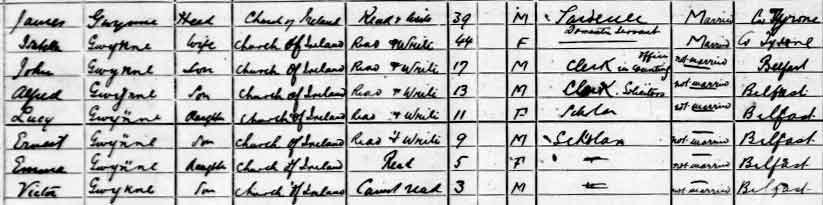 James Gwynne Head Church of Ireland Read & Write 39 M Married Co Tyrone
Gwynne Wife Church of Ireland Read & Write 44 F Domestic Servant Married Co Tyrone
John Gwynne Son Church of Ireland Read & Write 17 M Clerk in counting office not married Belfast
Alfred Gwynne Son Church of Ireland Read & Write 13 M Clerk Solicitors not married Belfast
Lucy Gwynne Daughter Church of Ireland Read & Write 11 F Scholar not married Belfast
Ernest Gwynne Son Church of Ireland Read & Write 9 M Scholar not married Belfast
Emma Gwynne Daughter Church of Ireland Read 5 F — not married Belfast
Victor Gwynne Son Church of Ireland Cannot read 3 M — not married Belfast